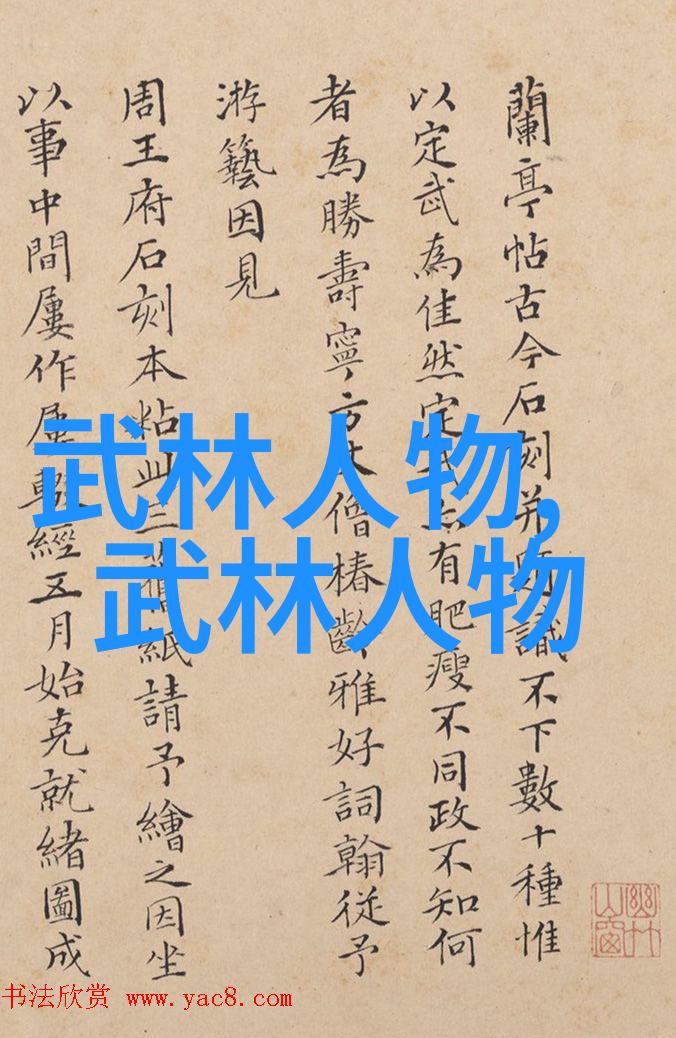 蘭亭帖古今石刻并所識不下數十種惟
以定武為佳然定武亦有肥瘦不同政不知何
者為勝壽寧方丈僧椿齡雅好詞翰從予
游藝因見
周王府石刻本粘此三舊紙請予繪之因坐
以事中間屢作屢輟經五月始克就緒圖成
武林人物,
武林人物
書法欣赏 www.yac8.com